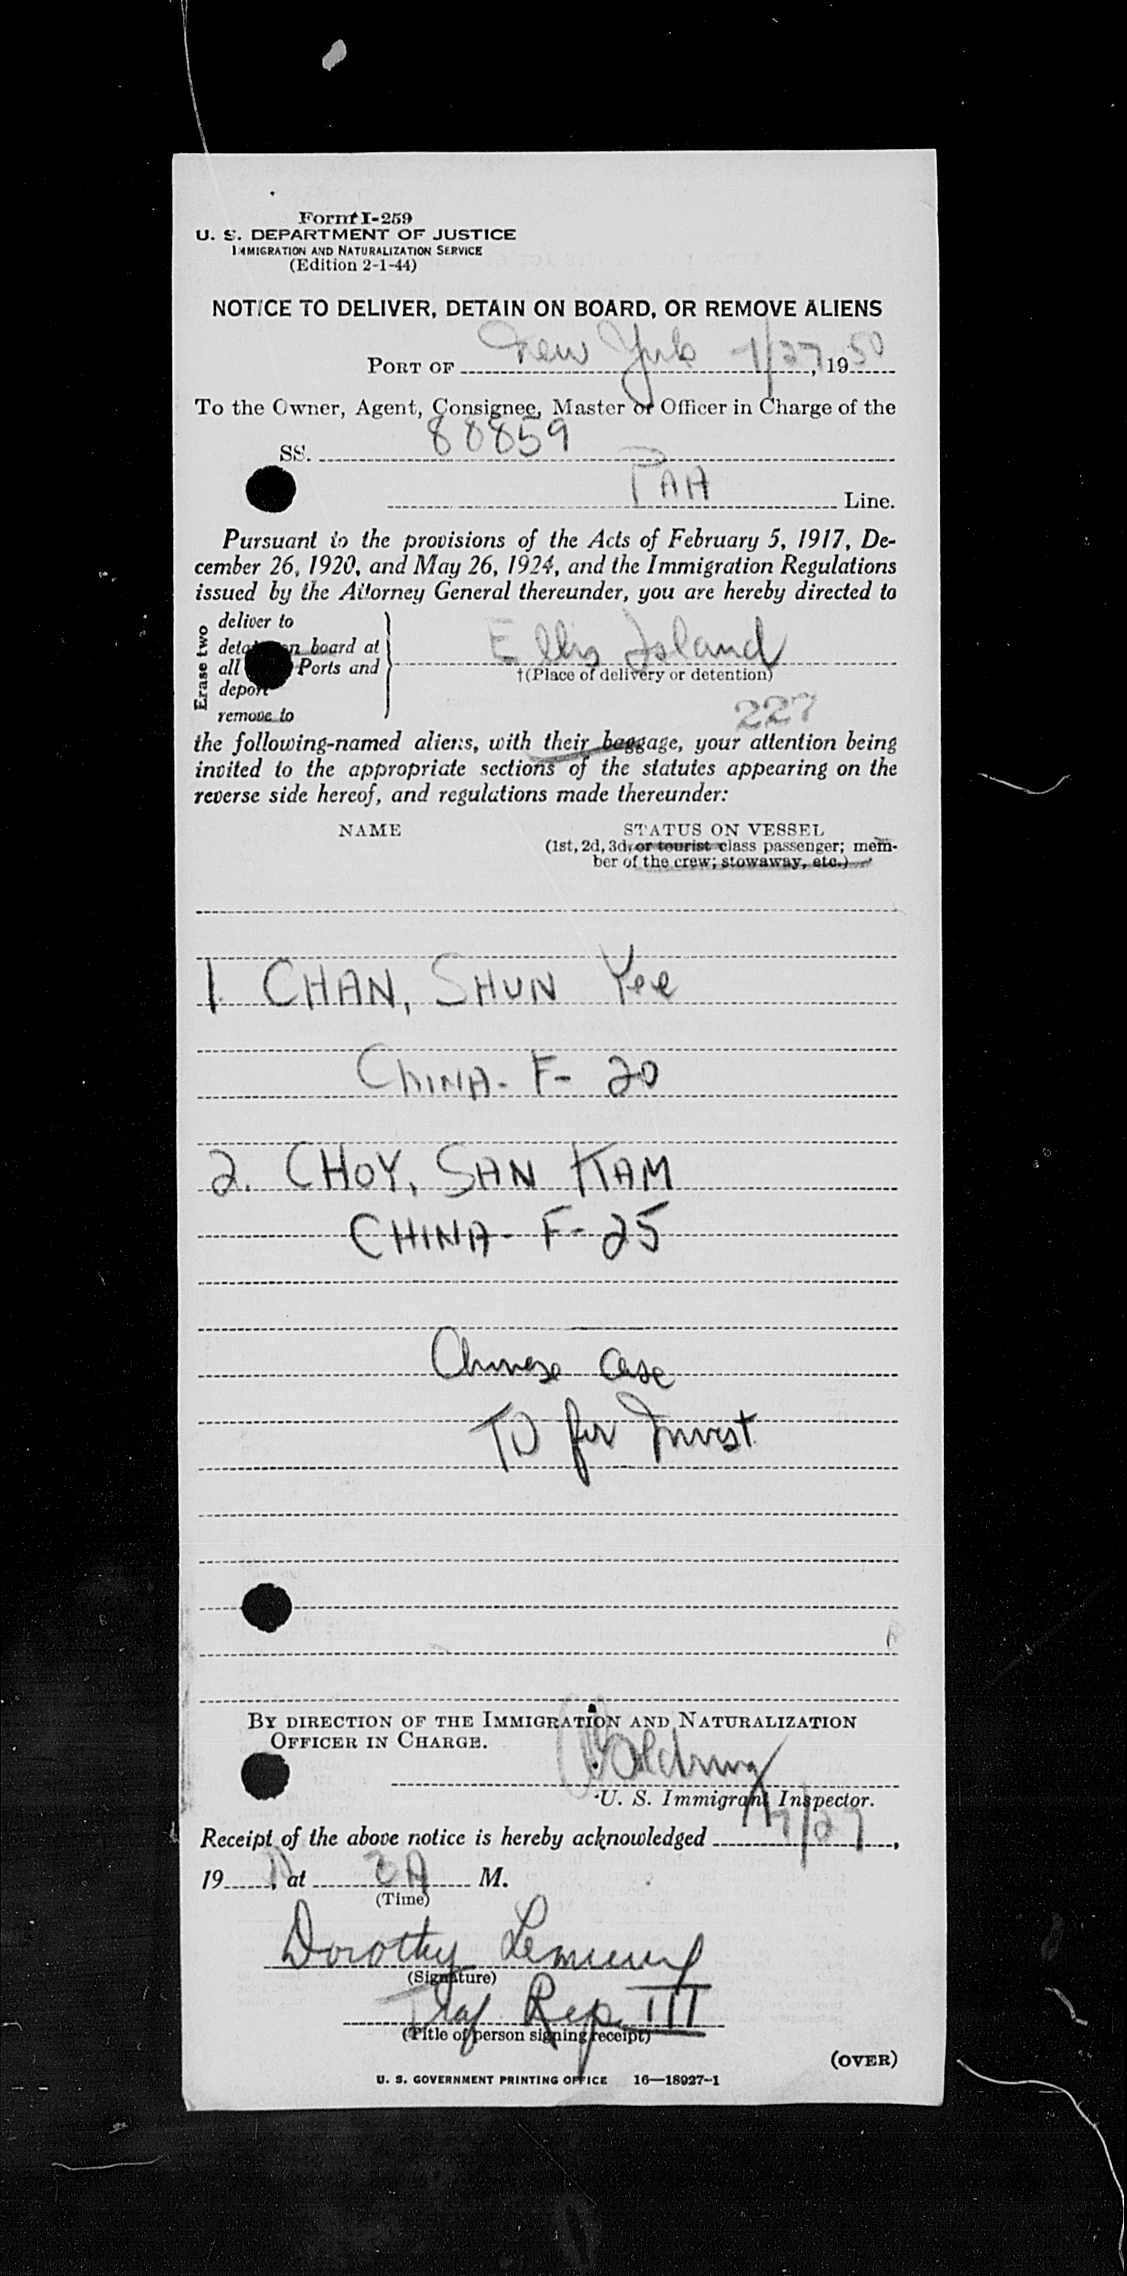 Form I-259
U. S. DEPARTMENT OF JUSTICE
IMMIGRATION AND NATURALIZATION SERVICE
(Edition 2-1-44)
NOTICE TO DELIVER, DETAIN ON BOARD, OR REMOVE ALIENS
PORT OF New York 7/27, 1950
To the Owner, Agent, Consignee, Master or Officer in Charge of the
SS. 88859
PAA Line.
Pursuant to the provisions of the Acts of February 5, 1917, De-
cember 26, 1920, and May 26, 1924, and the Immigration Regulations
issued by the Attorney General thereunder, you are hereby directed to
Erase two
deliver to
detain on board at
all Ports and
deport
remove to
Ellis Island
†(Place of delivery or detention)
227
the following-named aliens, with their baggage, your attention being
invited to the appropriate sections of the statutes appearing on the
reverse side hereof, and regulations made thereunder:
NAME STATUS ON VESSEL
(1st, 2d, 3d, or tourist class passenger; mem-
ber of the crew; stowaway, etc.)
1. CHAN, SHUN Yee
CHINA - F - 20
2. CHOY, SAN KAM
CHINA - F - 25
Chinese Case
TD for Invest.
BY DIRECTION OF THE IMMIGRATION AND NATURALIZATION
OFFICER IN CHARGE.
U. S. Immigrant Inspector.
Receipt of the above notice is hereby acknowledged 7/27,
19 , at A M.
(Time)
Dorothy
(Signature)
Traf Rep. III
(Title of person signing receipt)
(OVER)
U. S. GOVERNMENT PRINTING OFFICE 16—18927-1